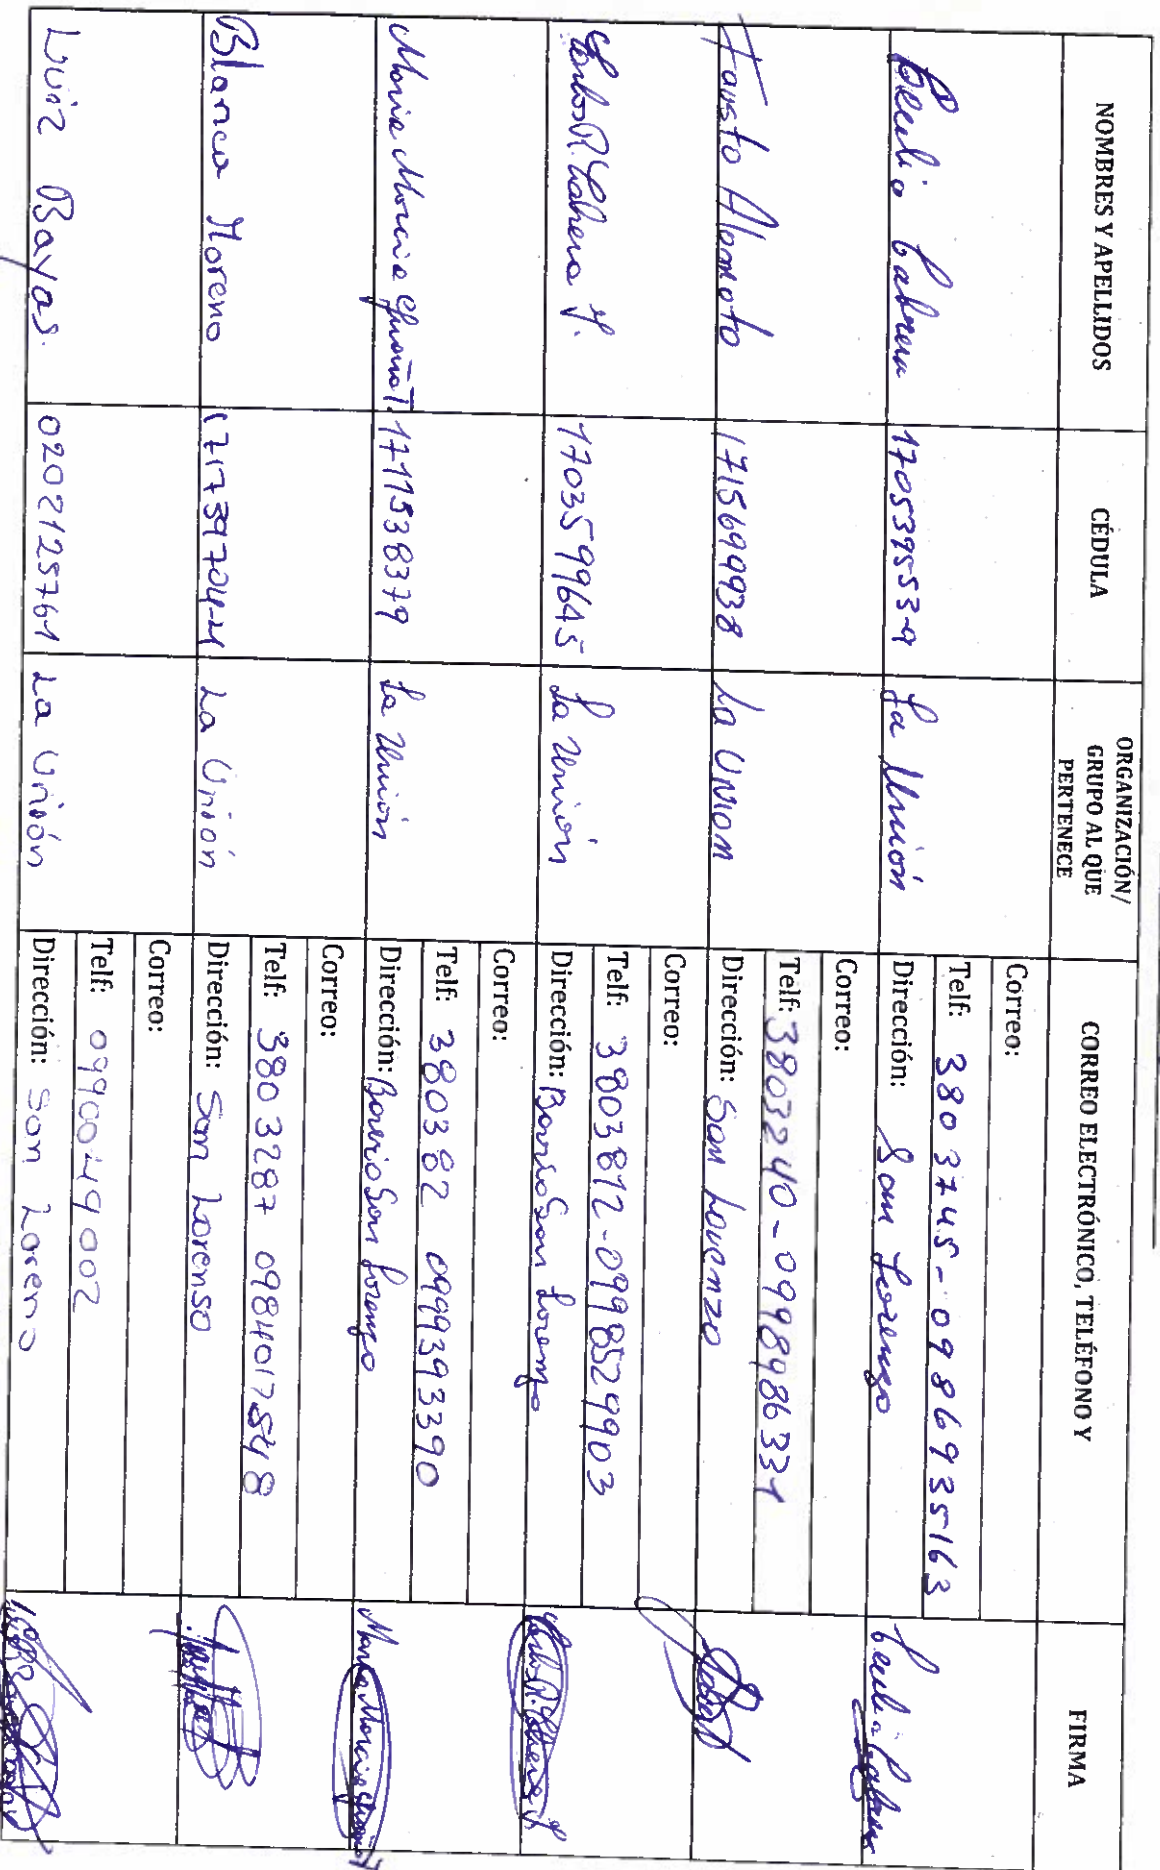 NOMBRES Y APELLIDOS
CÉDULA
ORGANIZACIÓN/
GRUPO AL QUE
PERTENECE
CORREO ELECTRÓNICO, TELÉFONO Y
FIRMA
Cabrera
170539553-9
La Unión
Correo:
Telf: 380 3745 - 0986935163
Dirección: San Lorenzo
Fausto Alomoto
1715699938
La Union
Correo:
Telf: 3803240 - 0998986331
Dirección: San Lorenzo
Carlos R. Cabrera J.
1703599645
La Unión
Correo:
Telf: 3803812 - 0998529903
Dirección: Barrio San Lorenzo
Maria Morcia T.
1711538379
La Unión
Correo:
Telf: 380382 0999393390
Dirección: Barrio San Lorenzo
Blanca Moreno
La Unión
Correo:
Telf: 380 3287 0984017548
Dirección: San Lorenso
Luiz Bayas.
0202125761
La Unión
Correo:
Telf: 0990049002
Dirección: San Loreno